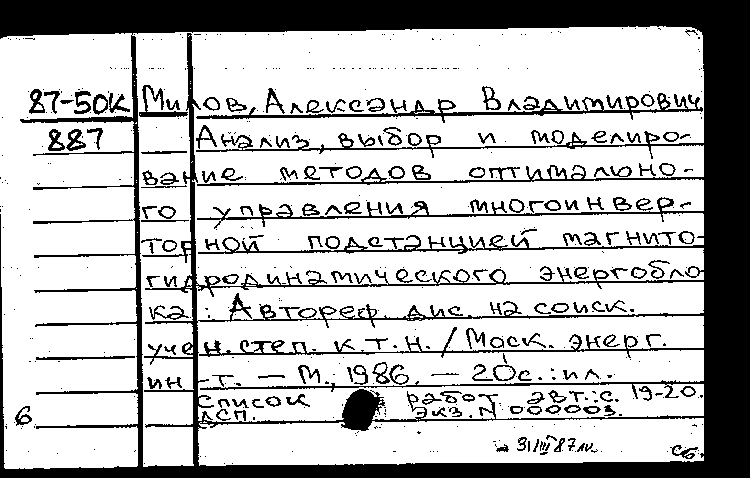 87-50К Милов, Александр Владимирович
887 Анализ, выбор и моделиро-
вание методов оптимально-
го управления многоинвер-
торной подстанцией магнито-
гидродинамического энергобло-
ка : Автореф. дис. на соиск.
учен. степ. к.т.н. / Моск. энерг.
ин-т. — М., 1986. — 20с.:ил.
Список работ авт.:с. 19-20.
6 ДСП. экз. N 000003.
31/III 87